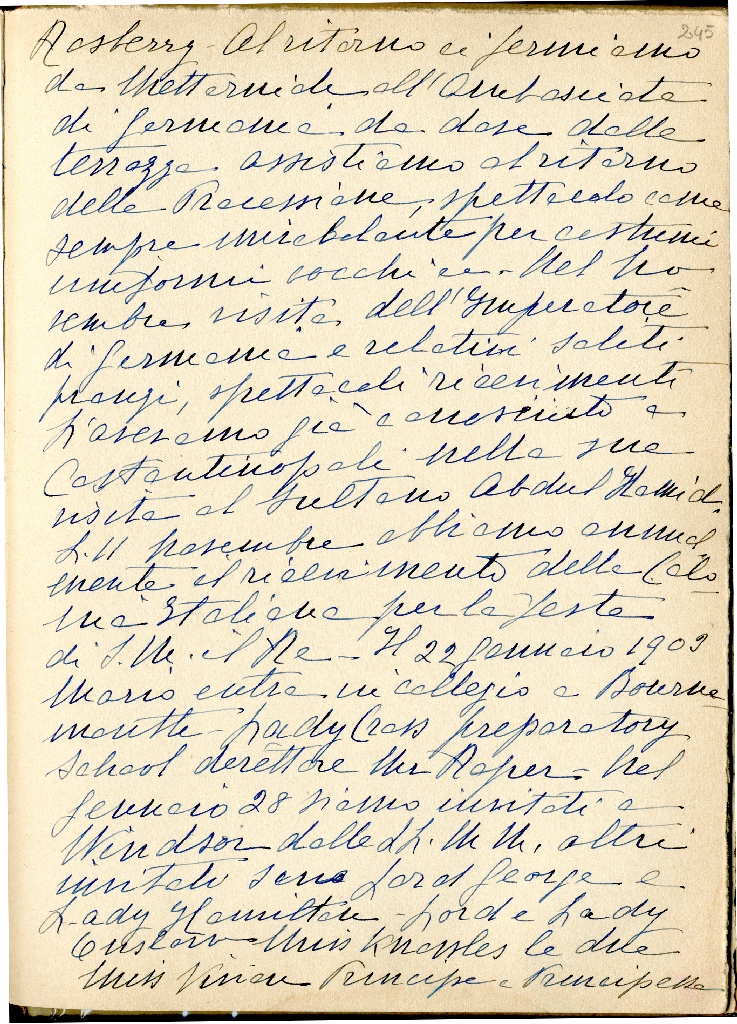 245
Rosberry - Al ritorno ci fermiamo
da Metternich all'Ambasciata
di Germania da dove dalla
terrazza assistiamo al ritorno
della Processione, spettacolo come
sempre mirabolante per costumi
uniformi cocchi ec - Nel No
vembre visita dell'Imperatore
di Germania e relativi soliti
pranzi, spettacoli ricevimenti
L'avevamo già conosciuto a
Costantinopoli nella sua
visita al Sultano Abdul Hamid.
L'11 Novembre abbiamo annual
mente il ricevimento della Colo
nia Italiana per la festa
di S.M. il Re - Il 22 Gennaio 1903
Mario entra in collegio a Bourne
mouth - Lady Cross preparatory
School direttore Mr Roper - Nel
Gennaio 28 siamo invitati a
Windsor dalle LL. M M. altri
invitati sono Lord George e
Lady Hamilton - Lord e Lady
Miss Knowles le due
Miss Vivian Principe e Principessa